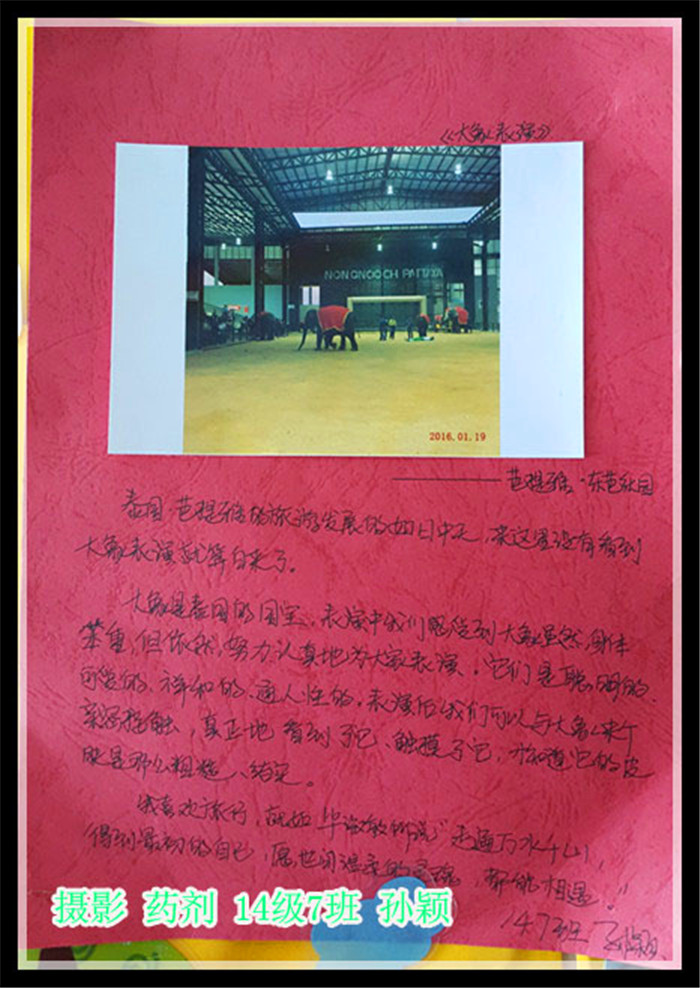 《大象表演》
NONGNOOCH PATTAYA
2016.01.19
——芭提雅·东芭乐园
泰国·芭提雅的旅游发展的如日中天，来这里没有看到
大象表演就算白来了。
大象是泰国的国宝，表演中我们感受到大象虽然身体
笨重，但依然努力认真地为大家表演。它们是聪明的、
可爱的、祥和的、通人性的。表演后我们可以与大象来个
亲密接触，真正地看到了它、触摸了它，才知道它的皮
肤是那么粗糙、结实。
我喜欢旅行，就如毕淑敏所说“走遍万水千山，
得到最初的自己，愿世间温柔的灵魂，都能相遇。”
14.7班 孙颖
摄影 药剂 14级7班 孙颖